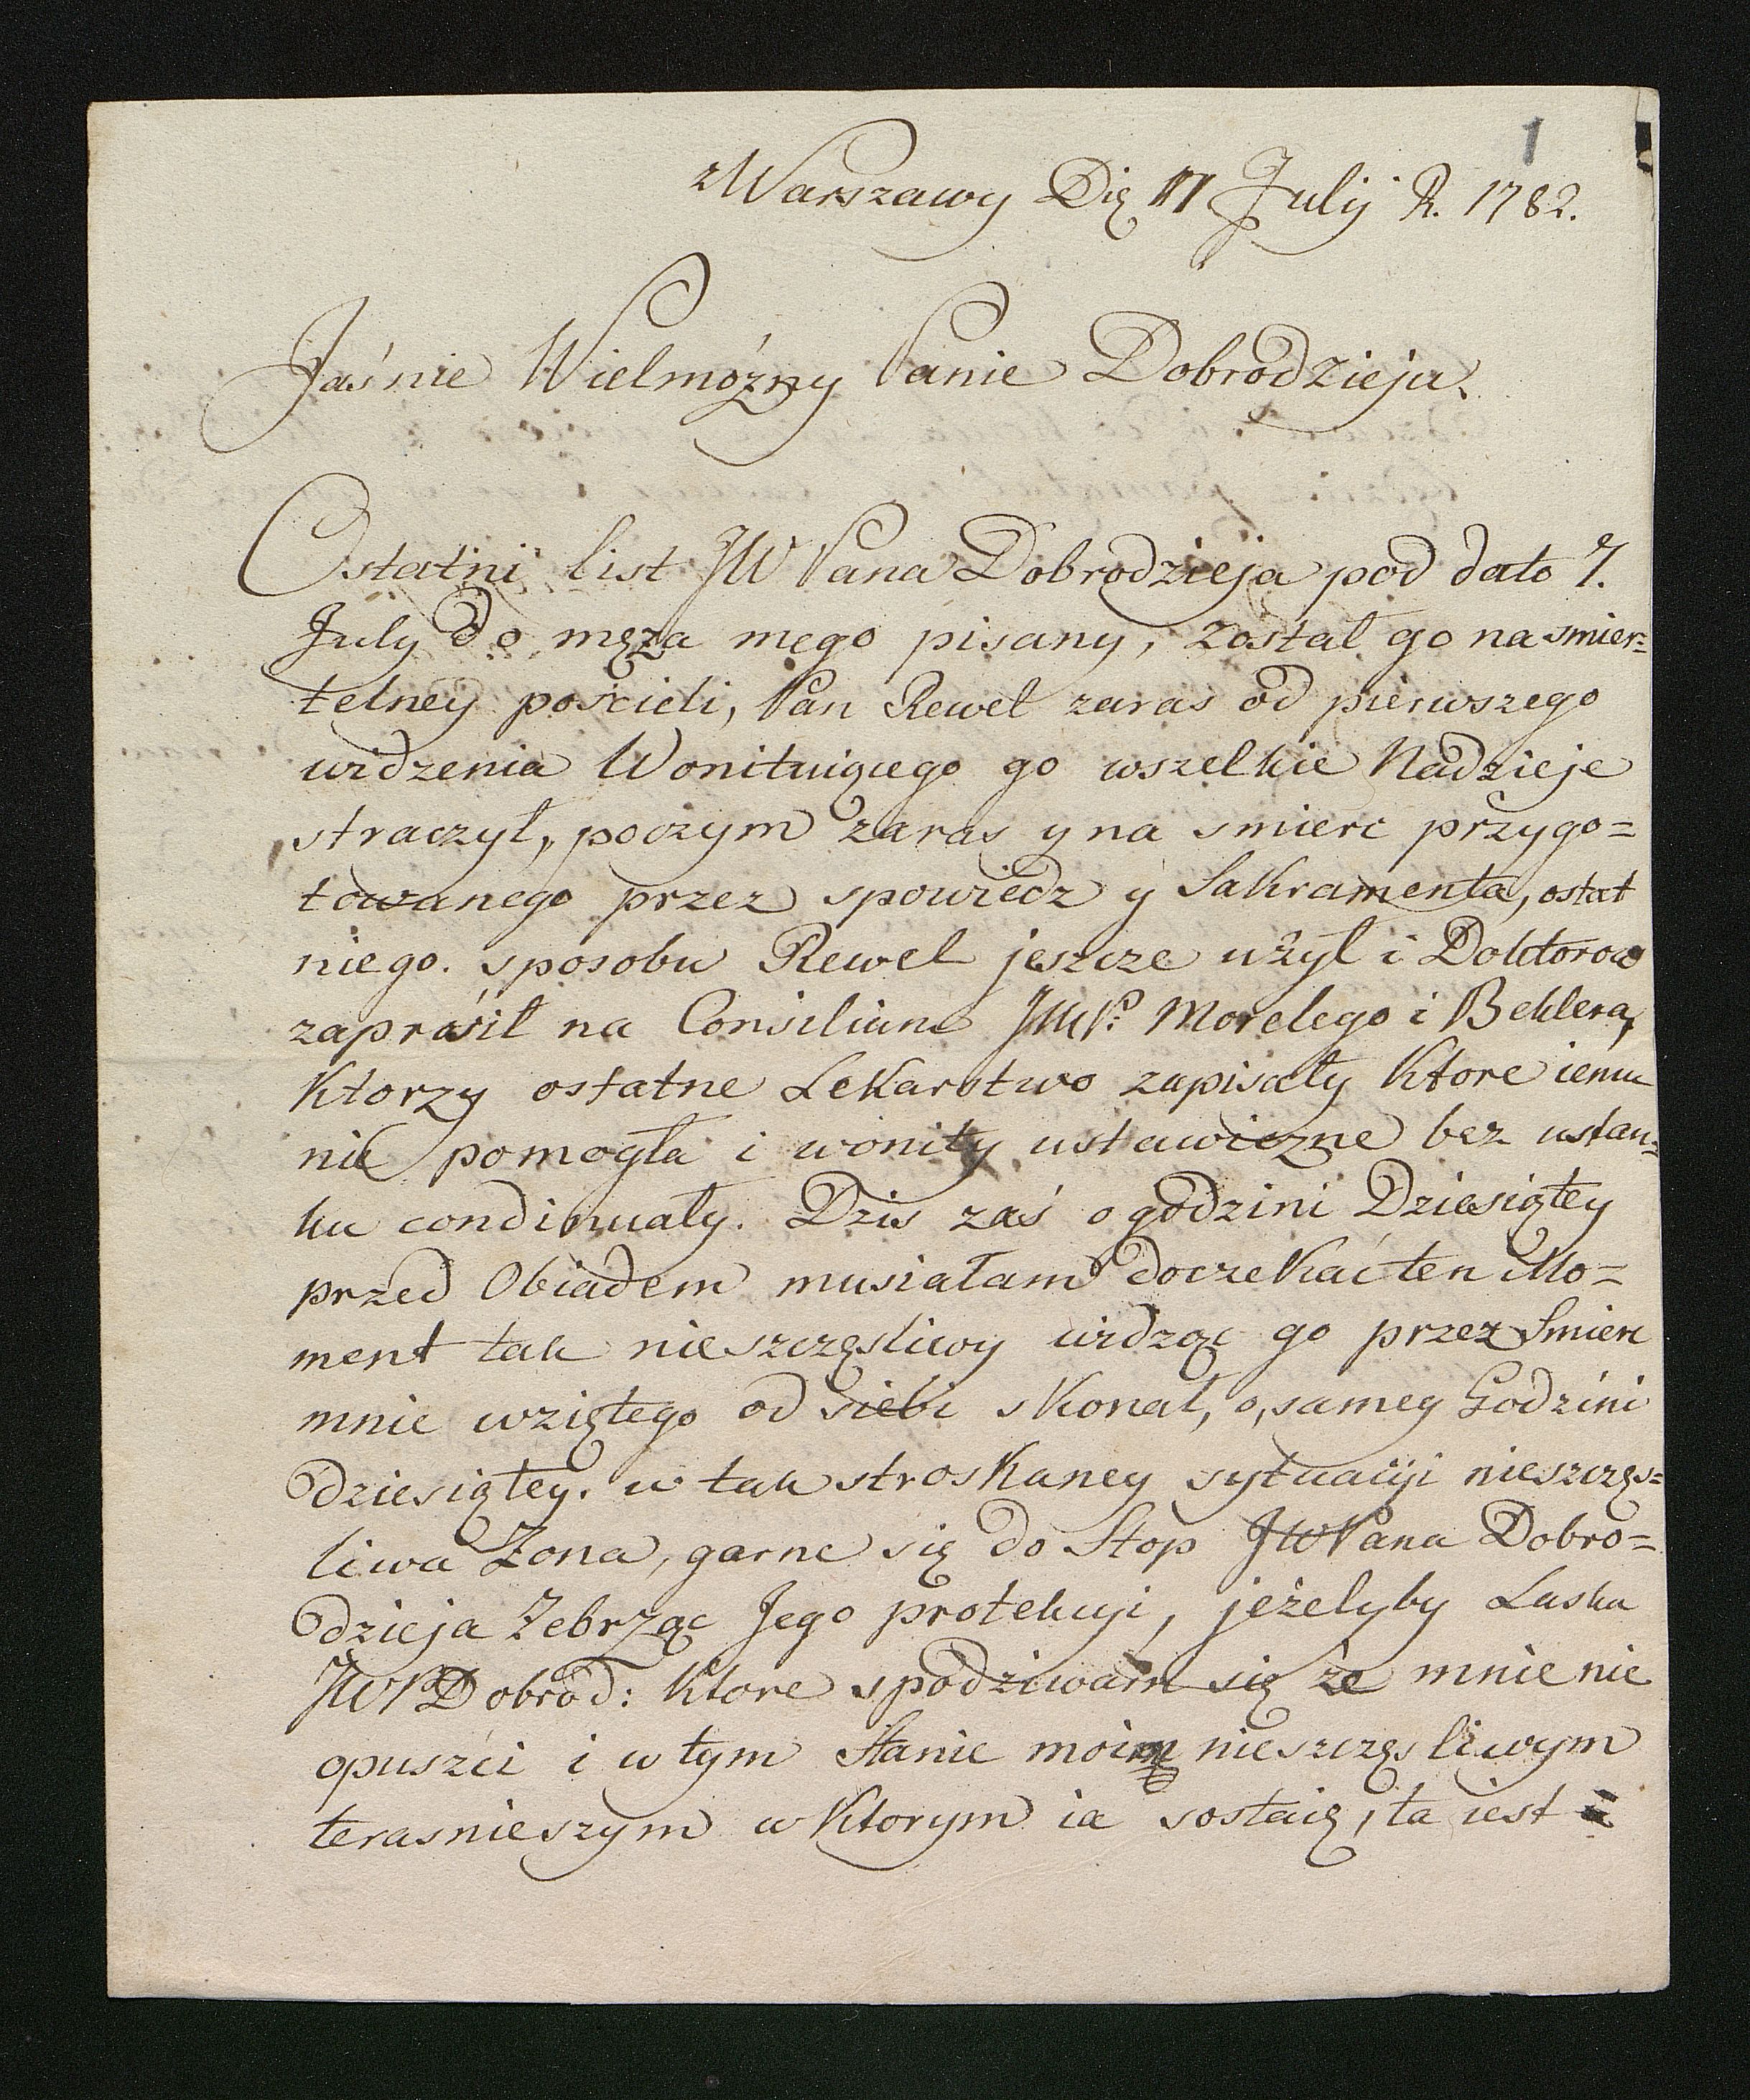 1
z Warszawy Dię 11 Julij R. 1782.
Jaśnie Wielmożny Panie Dobrodzieja.
Ostatni list JW Pana Dobrodzieja pod dato 7.
July do męza mego pisany, zostal go na smier=
telney posxieli, Pan Rewel zaras od pierwszego
widzenia Wonituiącego go wszelkie Nadzieje
straczył, poczym zaras y na smierc przygo=
towanego przez spowiedz y Sakramenta, ostat
niego. sposobu Rewel jeszcze użyl i Doktorow
zaprasił na Consilium JMP. Morelego i Beklera,
Ktorzy ostatne Lekarstwo zapisały Ktore iemu
nic pomogła i wonity ustawiczne bez ustan=
ku condinuały. Dzis zaś o godzini Dziesiątey
przed Obiadem musiałam doczekać ten Mo=
ment tak nieszczęsliwy widząc go przez Smierc
mnie wziętego od siebi skonał, o, samey Godzini
dziesiątey. w tak stroskaney sytuacyji nieszczęs=
liwa Zona, garne się do Stop JWPana Dobro=
dzieja Zebrząc Jego protekcji, jeżelyby Laska
JWPDobrod: Ktore spodziwam się że mnie nie
opuszci i w tym stanie moim nieszczęsliwym
terasnieszym w Ktorym ia sostaię, ta iest